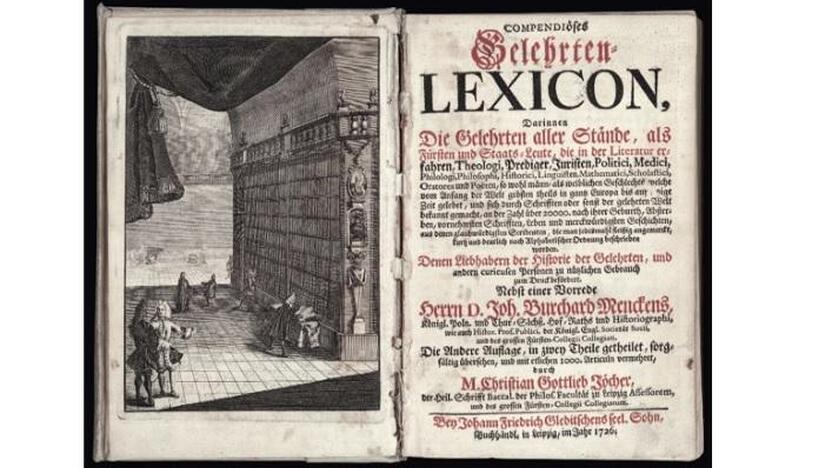 COMPENDiöses
Gelehrten-
LEXICON,
Darinnen
Die Gelehrten aller Stände, als
Fürsten und Staats-Leute, die in der Literatur er-
fahren, Theologi, Prediger, Juristen, Politici, Medici,
Philologi, Philosophi, Historici, Linguisten, Mathematici, Scholastici,
Oratores und Poëten, so wohl männ- als weiblichen Geschlechts, welche
vom Anfang der Welt grösten theils in gantz Europa bis auf jetzige
Zeit gelebet, und sich durch Schrifften oder sonst der gelehrten Welt
bekannt gemacht, an der Zahl über 20000. nach ihrer Geburth, Abster-
ben, vornehmsten Schrifften, Leben und merckwürdigsten Geschichten,
aus denen glaubwürdigsten Scribenten, die man jedesmahl fleißig angemerckt,
kurtz und deutlich nach Alphabetischer Ordnung beschrieben
worden.
Denen Liebhabern der Historie der Gelehrten, und
andern curieusen Personen zu nützlichen Gebrauch
zum Druck befördert.
Nebst einer Vorrede
Herrn D. Joh. Burchard Menckens,
Königl. Poln. und Chur-Sächß. Hof-Raths und Historiographi,
wie auch Histor. Prof. Publici, der Königl. Engl. Societät Socii,
und des grossen Fürsten-Collegii Collegiati.
Die Andere Auflage, in zwey Theile getheilet, sorg-
fältig übersehen, und mit etlichen 1000. Articuln vermehret,
durch
M. Christian Gottlieb Jöcher,
der Heil. Schrifft Baccal. der Philos. Facultät zu Leipzig Assessorem,
und des grossen Fürsten-Collegii Collegiatum.
Bey Johann Friedrich Gleditschens seel. Sohn,
Buchhändl. in Leipzig, im Jahr 1726.